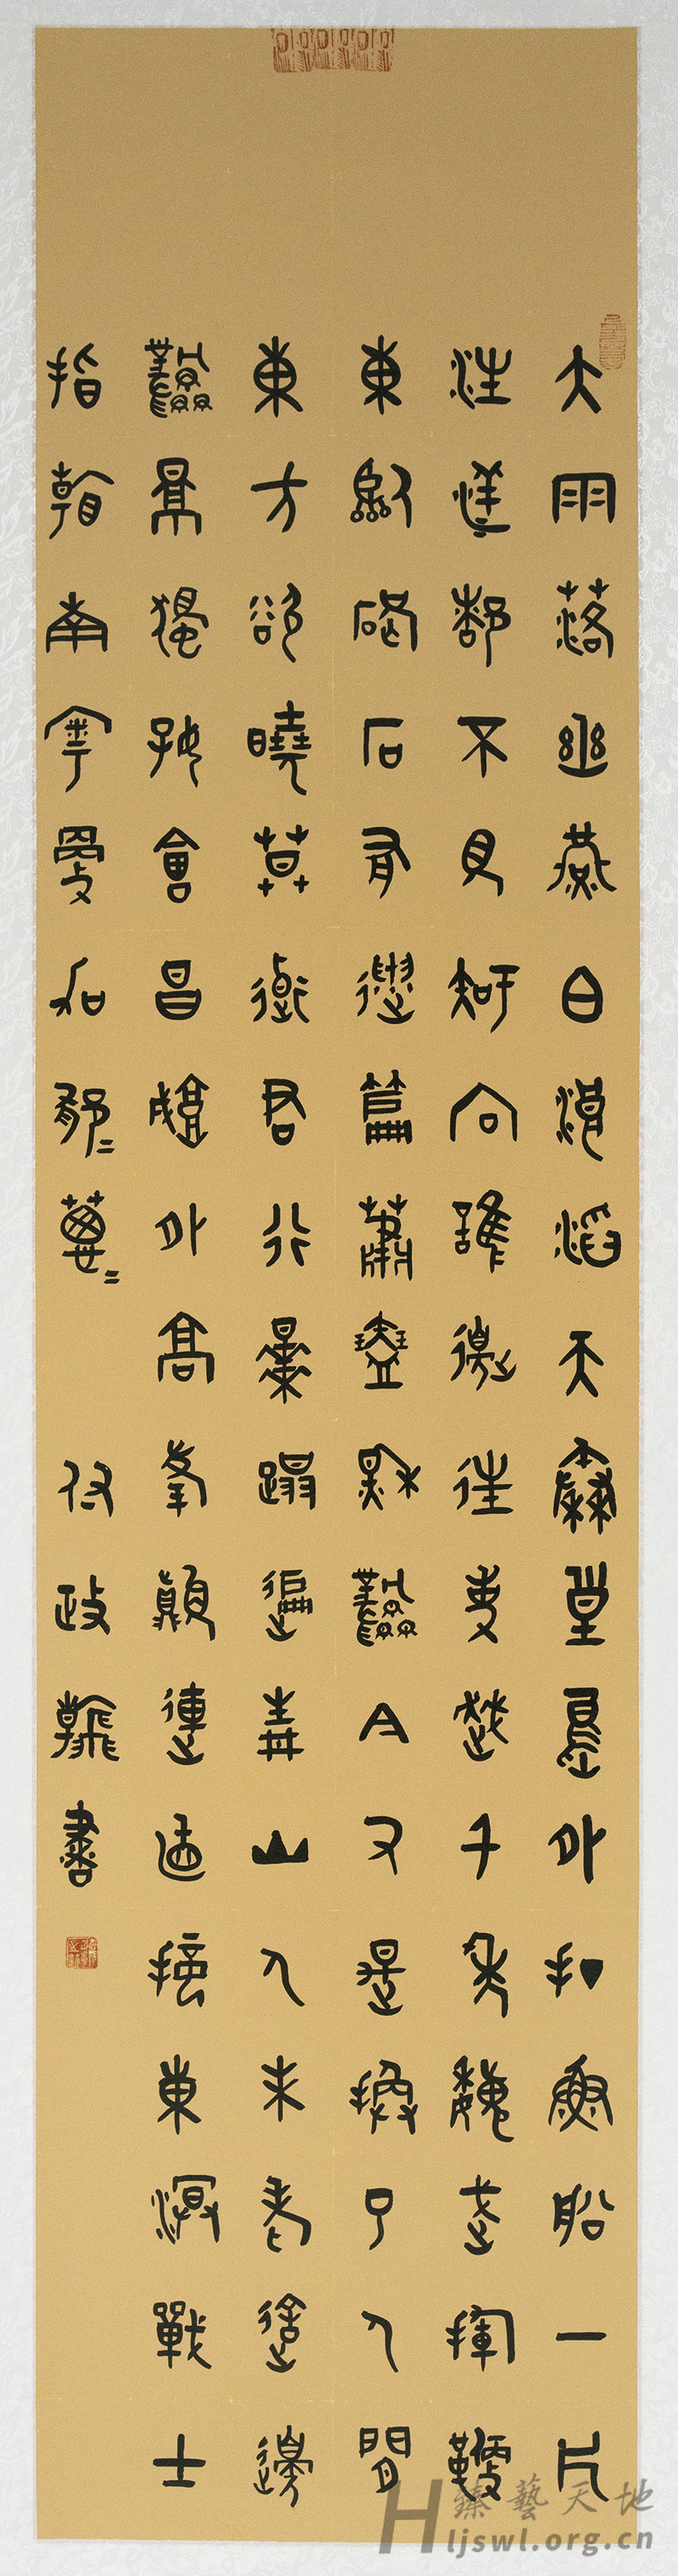 大雨落幽燕白浪滔天秦皇島外打魚船一片
汪洋都不見知向誰邊往事越千年魏武揮鞭
東臨碣石有遺篇蕭瑟秋風今又是換了人間
東方欲曉莫道君行早踏遍青山人未老這邊
風景獨好會昌城外高峰顛連直接東溟戰士
指看南粵更加郁=葱= 政書
臻藝天地
Hljswl.org.cn